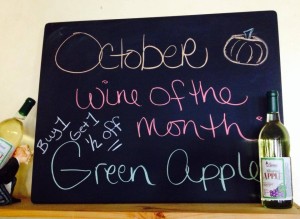 October
wine of the
month
Buy 1
Get 1
1/2 off
Green Apple
APPLE